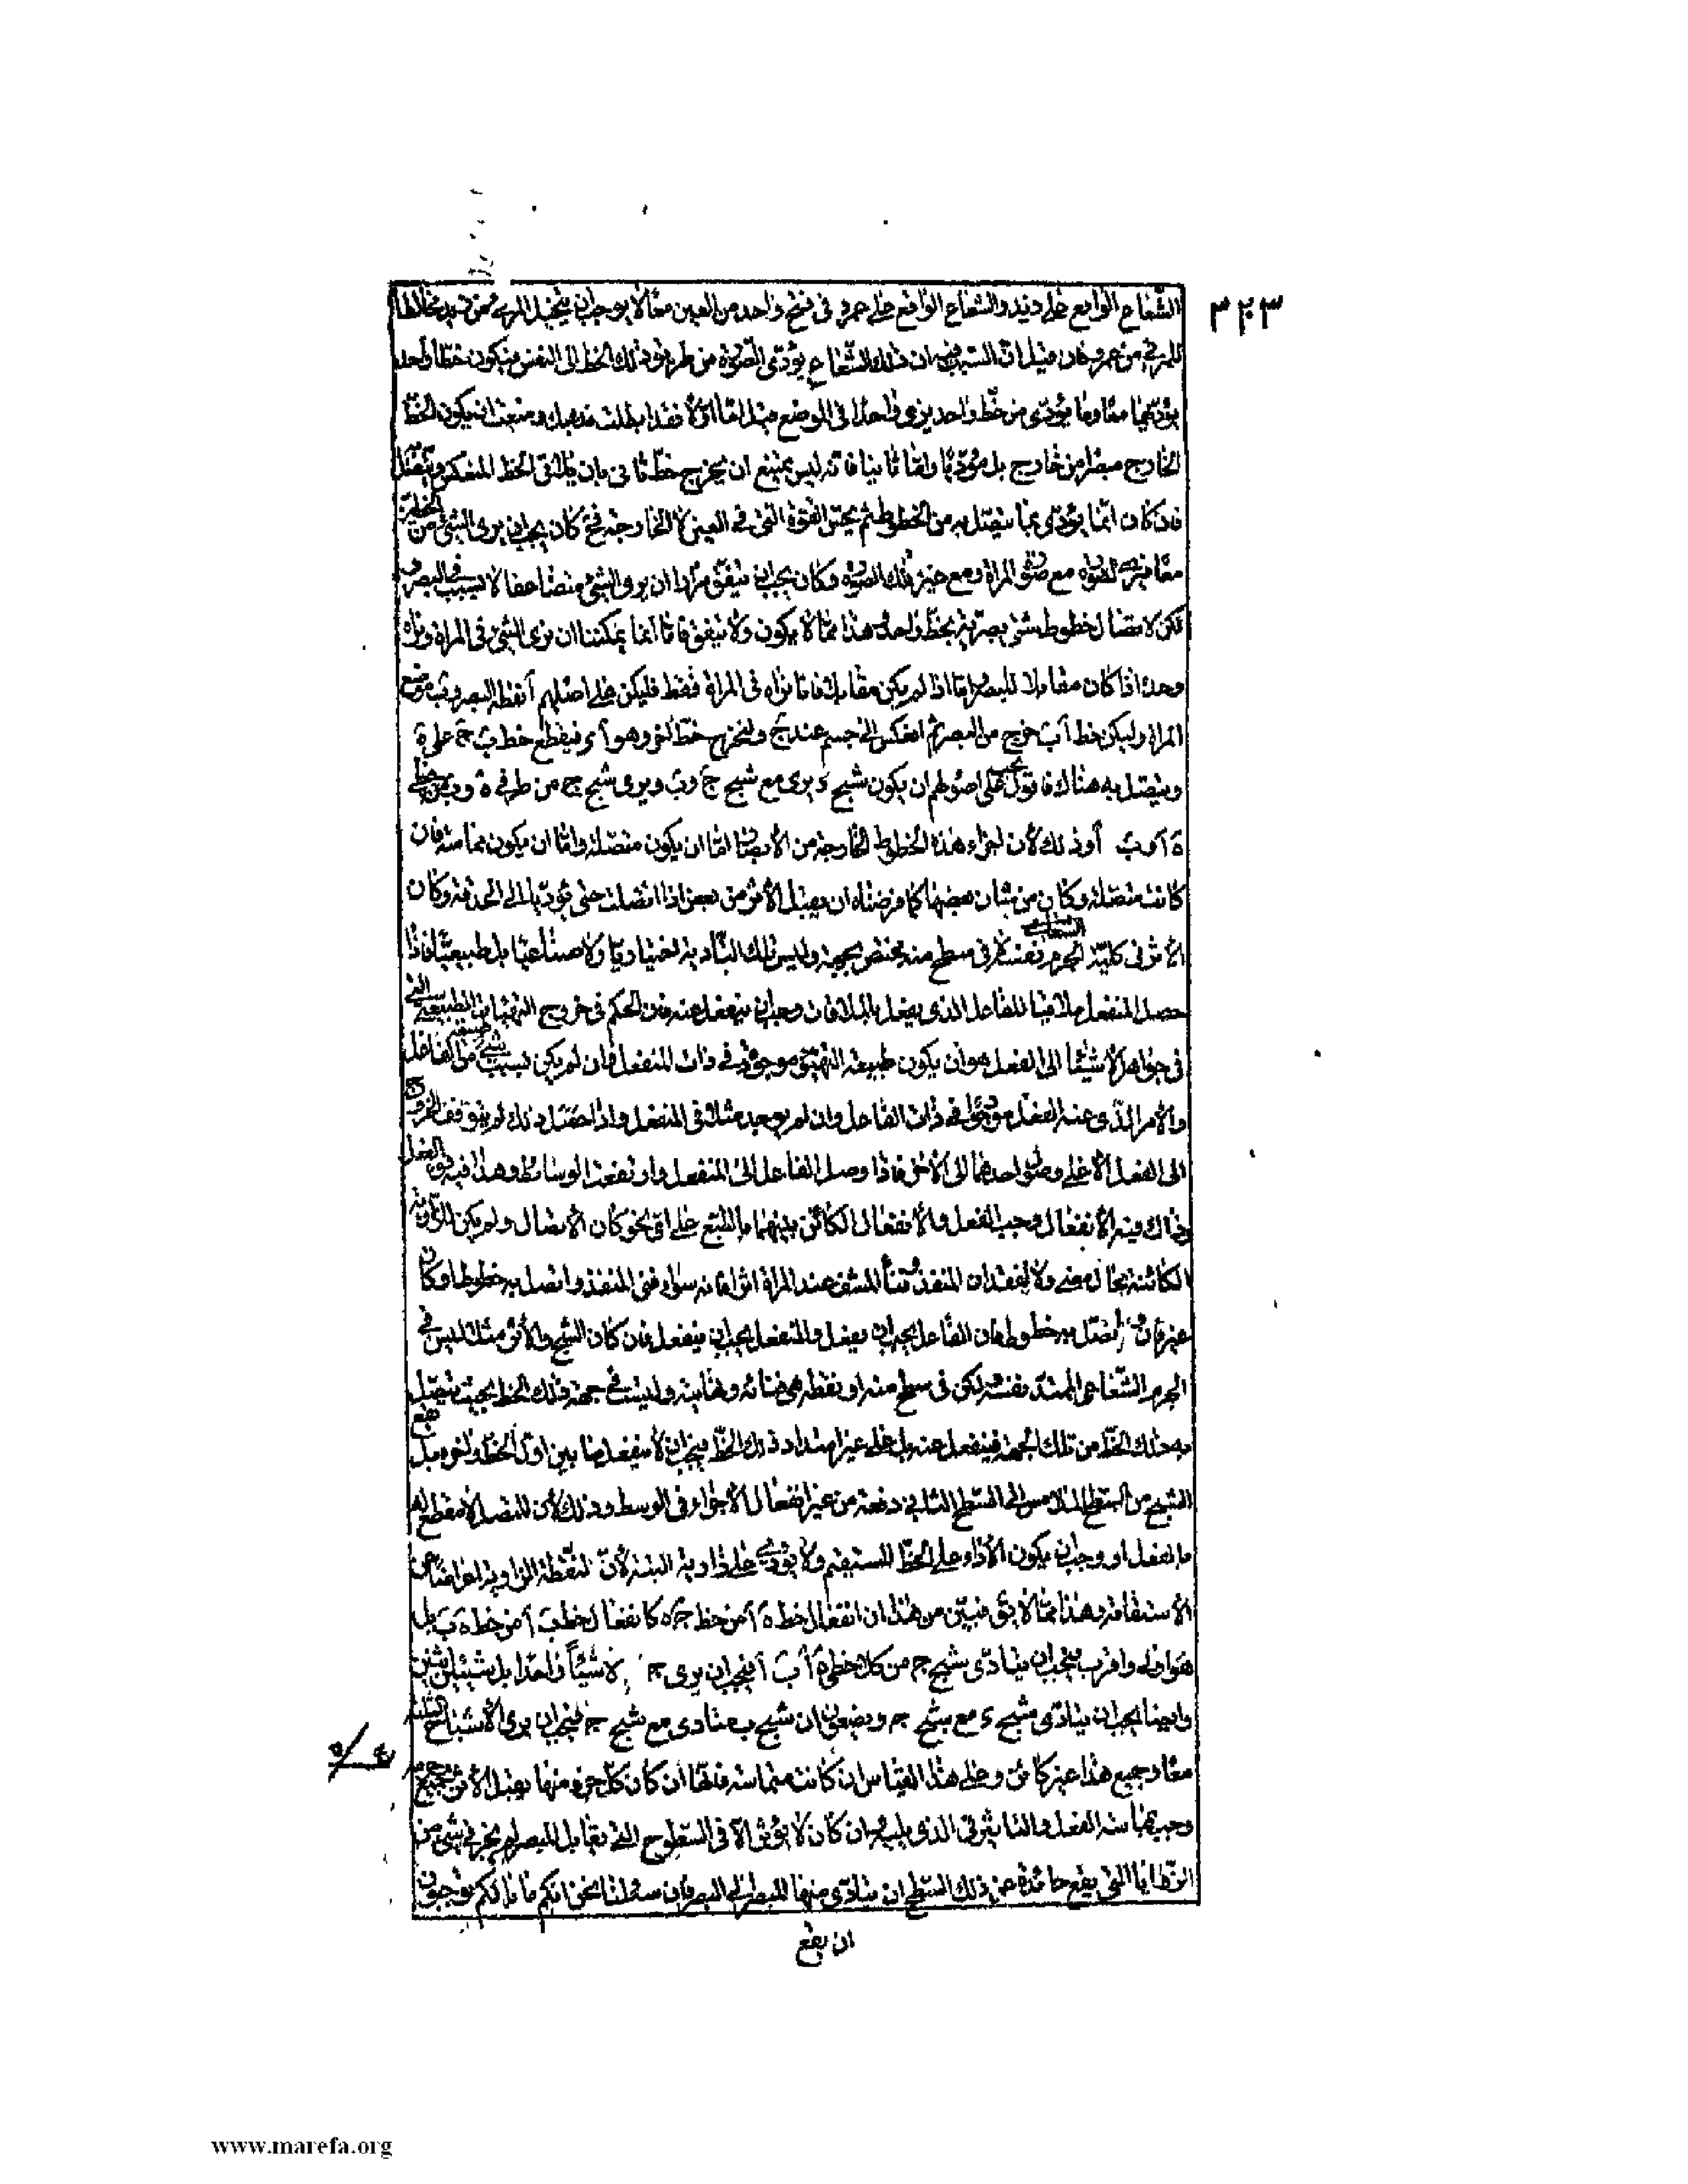 ٣٢٣
الشعاع الواقع على زيد والشعاع الواقع على عمرو فى فتح واحد من العين معا لا يوجب ان يتخيل المرئى من زيد مخالطا
للمرئى من عمرو فان قيل ان السبب فيه ان ذلك الشعاع يؤدى الصورة من طريق ذلك الخط الى النفس فيكون خطا واحدا
يؤديهما معا وما يؤدى من خط واحد يرى واحدا فى الوضع قيل اما اولا فقد ابطلت مذهبك ومنعت ان يكون الخط
الخارج مبصرا من خارج بل مؤديا واما ثانيا فانه ليس يمتنع ان يخرج خط ثانى بان يلاقى الخط المنعكس ويتصل
فان كان انما يؤدى بما يتصل به من الخطوط ثم يحس القوة التى فى العين لا الخارجة فح كان يجب ان يرى الشئ من الخطين
معا فيرى الصورة مع صورة المرآة ومع غير تلك الصورة وكان يجب ان يتفق مرارا ان يرى الشئ متضاعفا لا بسبب فى البصر
لكن لاتصال خطوط شتى بصرية بخط واحد وهذا مما لا يكون ولا يتفق فانا انما يمكننا ان نرى الشئ فى المرآة ونراه
وحده اذا كان مقابلا للبصر واما اذا لم يكن مقابلا فانا نراه فى المرآة فقط فليكن على اصلهم آ نقطة البصر وب موضع
المرآة وليكن خط آب خرج من البصر ثم انعكس الى جسم عند ج وليخرج خط اخر وهو آء فيقطع خط ب ج على ه
ويتصل به هناك فاقول يجب على اصولهم ان يكون شبح ء يرى مع شبح ج وب ويرى شبح ج من طرفى ه وب من خطى
ه آ وب آ وذلك لان اجزاء هذه الخطوط الخارجة من الابصار اما ان يكون متصلة واما ان يكون مماسة فان
كانت متصلة وكان من شان بعضها كما فرضناه ان يقبل الاثر من بعض اذا اتصلت حتى يؤديها الى الحدقة وكان
الاثر فى كلية الجرم الشعاعى نفسه لا فى سطح منه يختص بجهة وليس تلك التأدية اختيارية ولا صناعية بل طبيعية فاذا
حصل المنفعل ملاقيا للفاعل الذى يفعل بالملاقاة وجب ان ينفعل عنه فان الحكم فى خروج التهيئات الطبيعية التى
فى جواهر الاشياء الى الفعل هو ان يكون طبيعة التهيؤ موجودة فى ذات المنفعل وان لم يكن بسبب شئ من الفاعل
والامر الذى عنه الفعل موجودا فى ذات الفاعل وان لم يوجد مثله فى المنفعل واذا حصل ذلك لم يتوقف الخروج
الى الفعل الا على وصول احدهما الى الاخر فاذا وصل الفاعل الى المنفعل وارتفعت الوسائط وهذا فيه قوة الفعل
وذاك فيه الانفعال وجب الفعل والانفعال الكائن بينهما بالطبع على اى نحو كان الاتصال ولم يكن للزاوية
الكائنة بحال معنى ولا لفقدان المنفذ
غير فان اتصل به خطوط فان الفاعل يجب ان يفعل والمنفعل يجب ان ينفعل فان كان الشبح والاثر مثلا ليس فى
الجرم الشعاعى الممتد نفسه ولكن فى سطح منه او نقطة هى فنائه ونهايته وليست فى جهة ذلك الخط بحيث يتصل
به ذلك الخط من تلك الجهة فينفعل عنه بل على غير امتداد ذلك الخط فيجب ان لا ينفعل ما بين اول الخط واخره بل يقع
الشبح من السطح الملامس الى السطح الثانى دفعة من غير انفعال الاجزاء فى الوسط وذلك لان المتصل لا مقطع له
بالفعل او وجب ان يكون الاداء على الخط المستقيم ولا يؤدى على زاوية البتة لان لنقطة الزاوية اعراضا عن
الاستقامة وهذا مما لا يق فبين من هذا ان انفعال خط ه آ من خط ج ه كانفعال خط ب آ من خط ه ب بل
هو اولى واقرب فيجب ان يتأدى شبح ج من كلا خطى ه آ ب آ فيجب ان يرى ج لا شيئا واحدا بل شيئين اثنين
وايضا يجب ان يتأدى شبح ء مع شبح ج ويضعون ان شبح ب يتادى مع شبح ج فيجب ان يرى الاشباح الثلثة
معا وجميع هذا غير كائن وعلى هذا القياس ان كانت متماسة فانها ان كان كل جزء منها يقبل الاثر بجميع جرمه
وجب مماسة الفعل والتاثير فى الذى يليه وان كان لا يؤثر الا فى السطوح التى تقابل المبصر لم يجز فى شئ من
الزوايا التى يقع حائدة عن ذلك السطح ان يتأدى منها المبصر الى البصر فان سئلنا نحن انكم ما بالكم توجبون
ان يقع
www.marefa.org